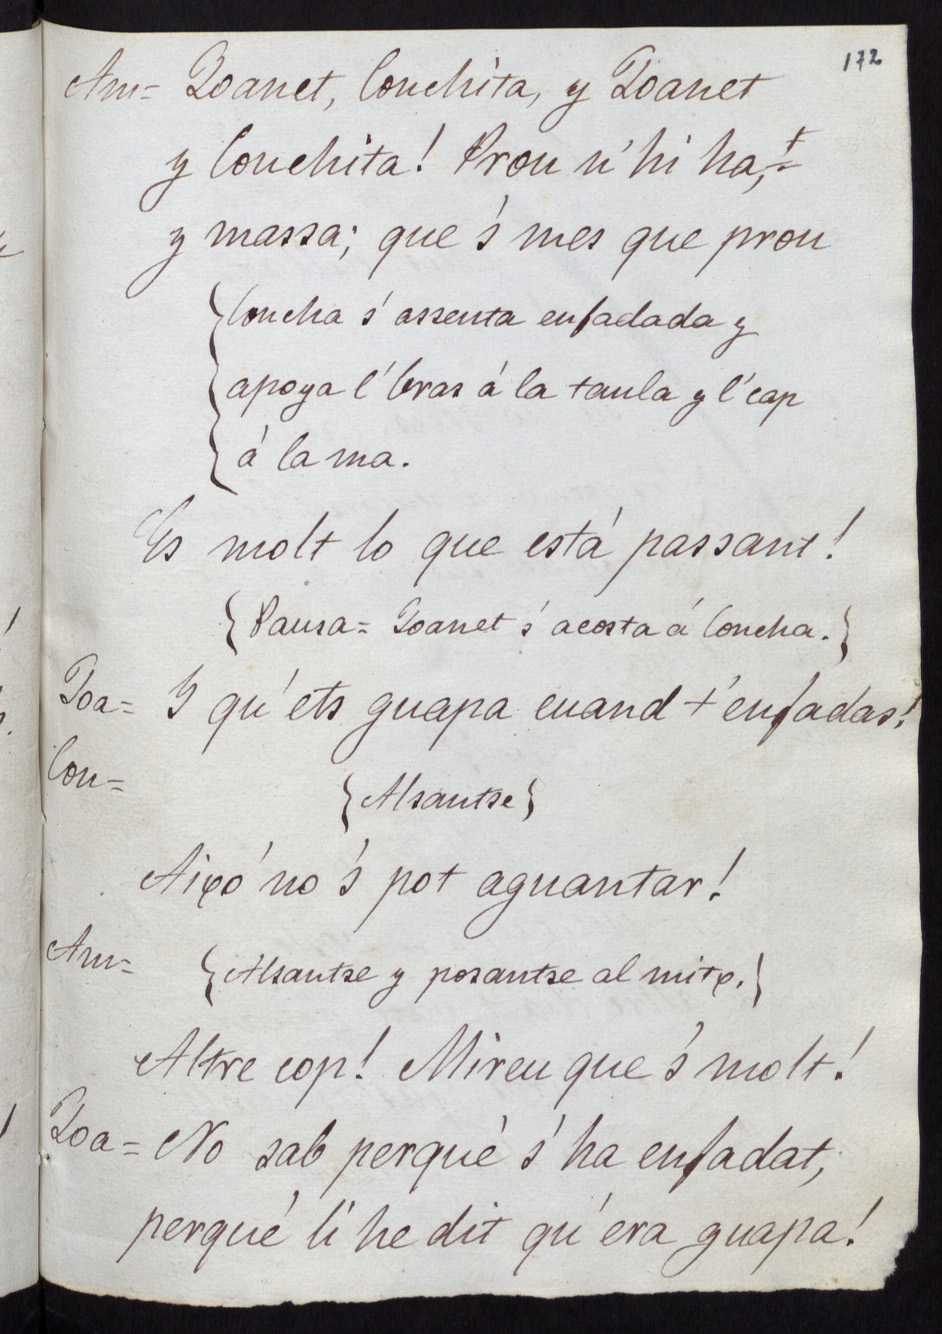 172
Am= Joanet, Conchita, y Joanet
y Conchita! Prou n'hi ha,
y massa; que 's mes que prou
{Concha s' assenta enfadada y
apoya l' bras á la taula y l' cap
á la ma.
Es molt lo que está passant!
{Pausa= Joanet s' acosta á Concha.}
Joa= Y qu' ets guapa cuand t' enfadas!
Con=
{Alsantse}
Aixó no 's pot aguantar!
Am= {Alsantse y posantse al mitx.}
Altre cop! Mireu que 's molt!
Joa= No sab perqué s' ha enfadat,
perqué li he dit qu' era guapa!